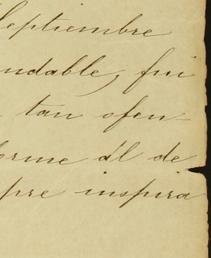 Septiembre
undable, fui
tan ofen-
orme ál de
pre inspira